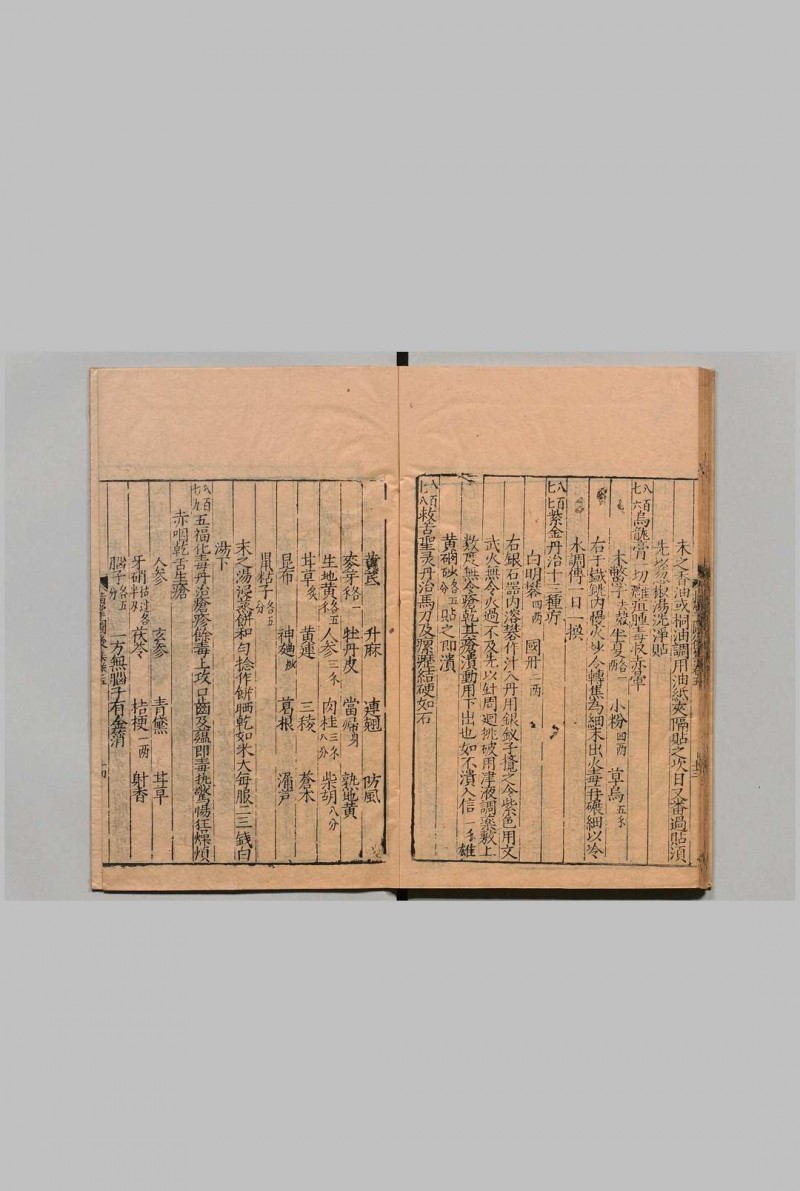 末之香油或桐油調用油紙夾隔貼之次日又番過貼須
先葱椒湯洗淨貼
八百七六烏龍膏一切癰疽腫毒收赤暈
木鱉子去殼 半夏各一兩 小粉四兩 草烏五錢
右于鐵銚內慢火炒令轉焦為細末出火毒再碾細以冷
水調傅一日一換
八百七七紫金丹治十三種疔
白明礬四兩 國丹二兩
右銀石器內溶礬作汁入丹用銀釵子攪之令紫色用文
武火無令火過不及先以針周迴挑破用津液調藥敷上
數度無令瘡乾其瘡潰動用下出也如不潰入信一錢雄
黃硇砂各五分貼之即潰
八百七八救苦聖灵丹治馬刀及瘰癧結硬如石
黃芪 升麻 連翹 防風
麥芽各一錢 牡丹皮 當歸身 熟地黃
生地黃各五錢 人參三錢 肉桂三錢八分 柴胡八分
甘草炙 黃連 三稜 蒼朮
昆布 神麯炒 葛根
鼠粘子各五分
末之湯浸蒸餅和勻捻作餅晒乾如米大每服二三錢白
湯下
八百七九五福化毒丹治瘡疹餘毒上攻口齒及蘊即毒熱驚惕狂燥煩
赤咽乾舌生瘡
人參 玄參 青黛 甘草
牙硝 茯苓 桔梗一兩 射香
腦子各五分 一方無腦子有金箔